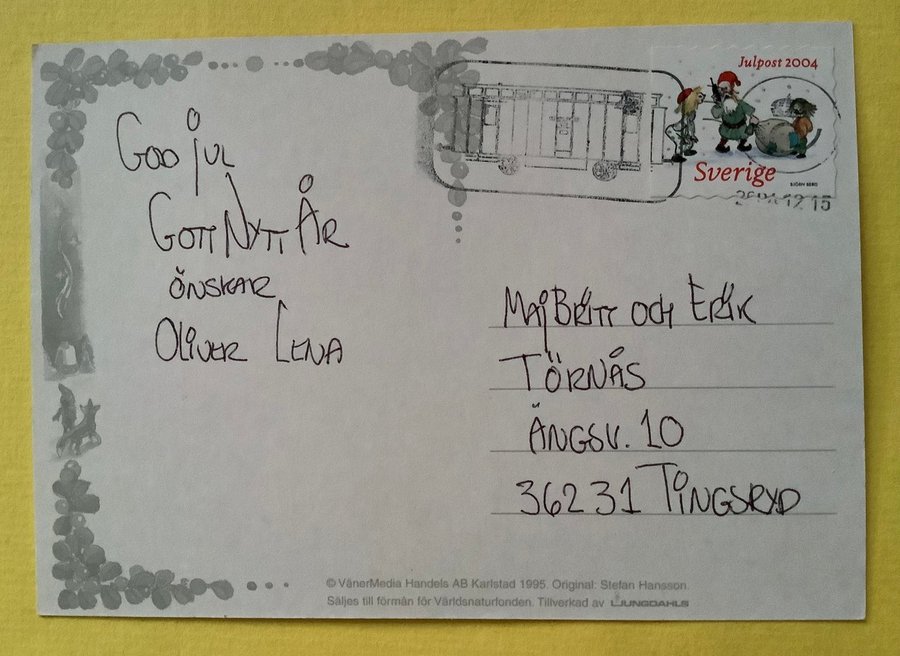 Julpost 2004
Sverige
BJÖRN BERG
GOD JUL
GOTT NYTT ÅR
ÖNSKAR
OLIVER LENA
MAJBRITT OCH ERIK
TÖRNÅS
ÄNGSV. 10
36231 TINGSRYD
© VänerMedia Handels AB Karlstad 1995. Original: Stefan Hansson.
Säljes till förmån för Världsnaturfonden. Tillverkad av LJUNGDAHLS